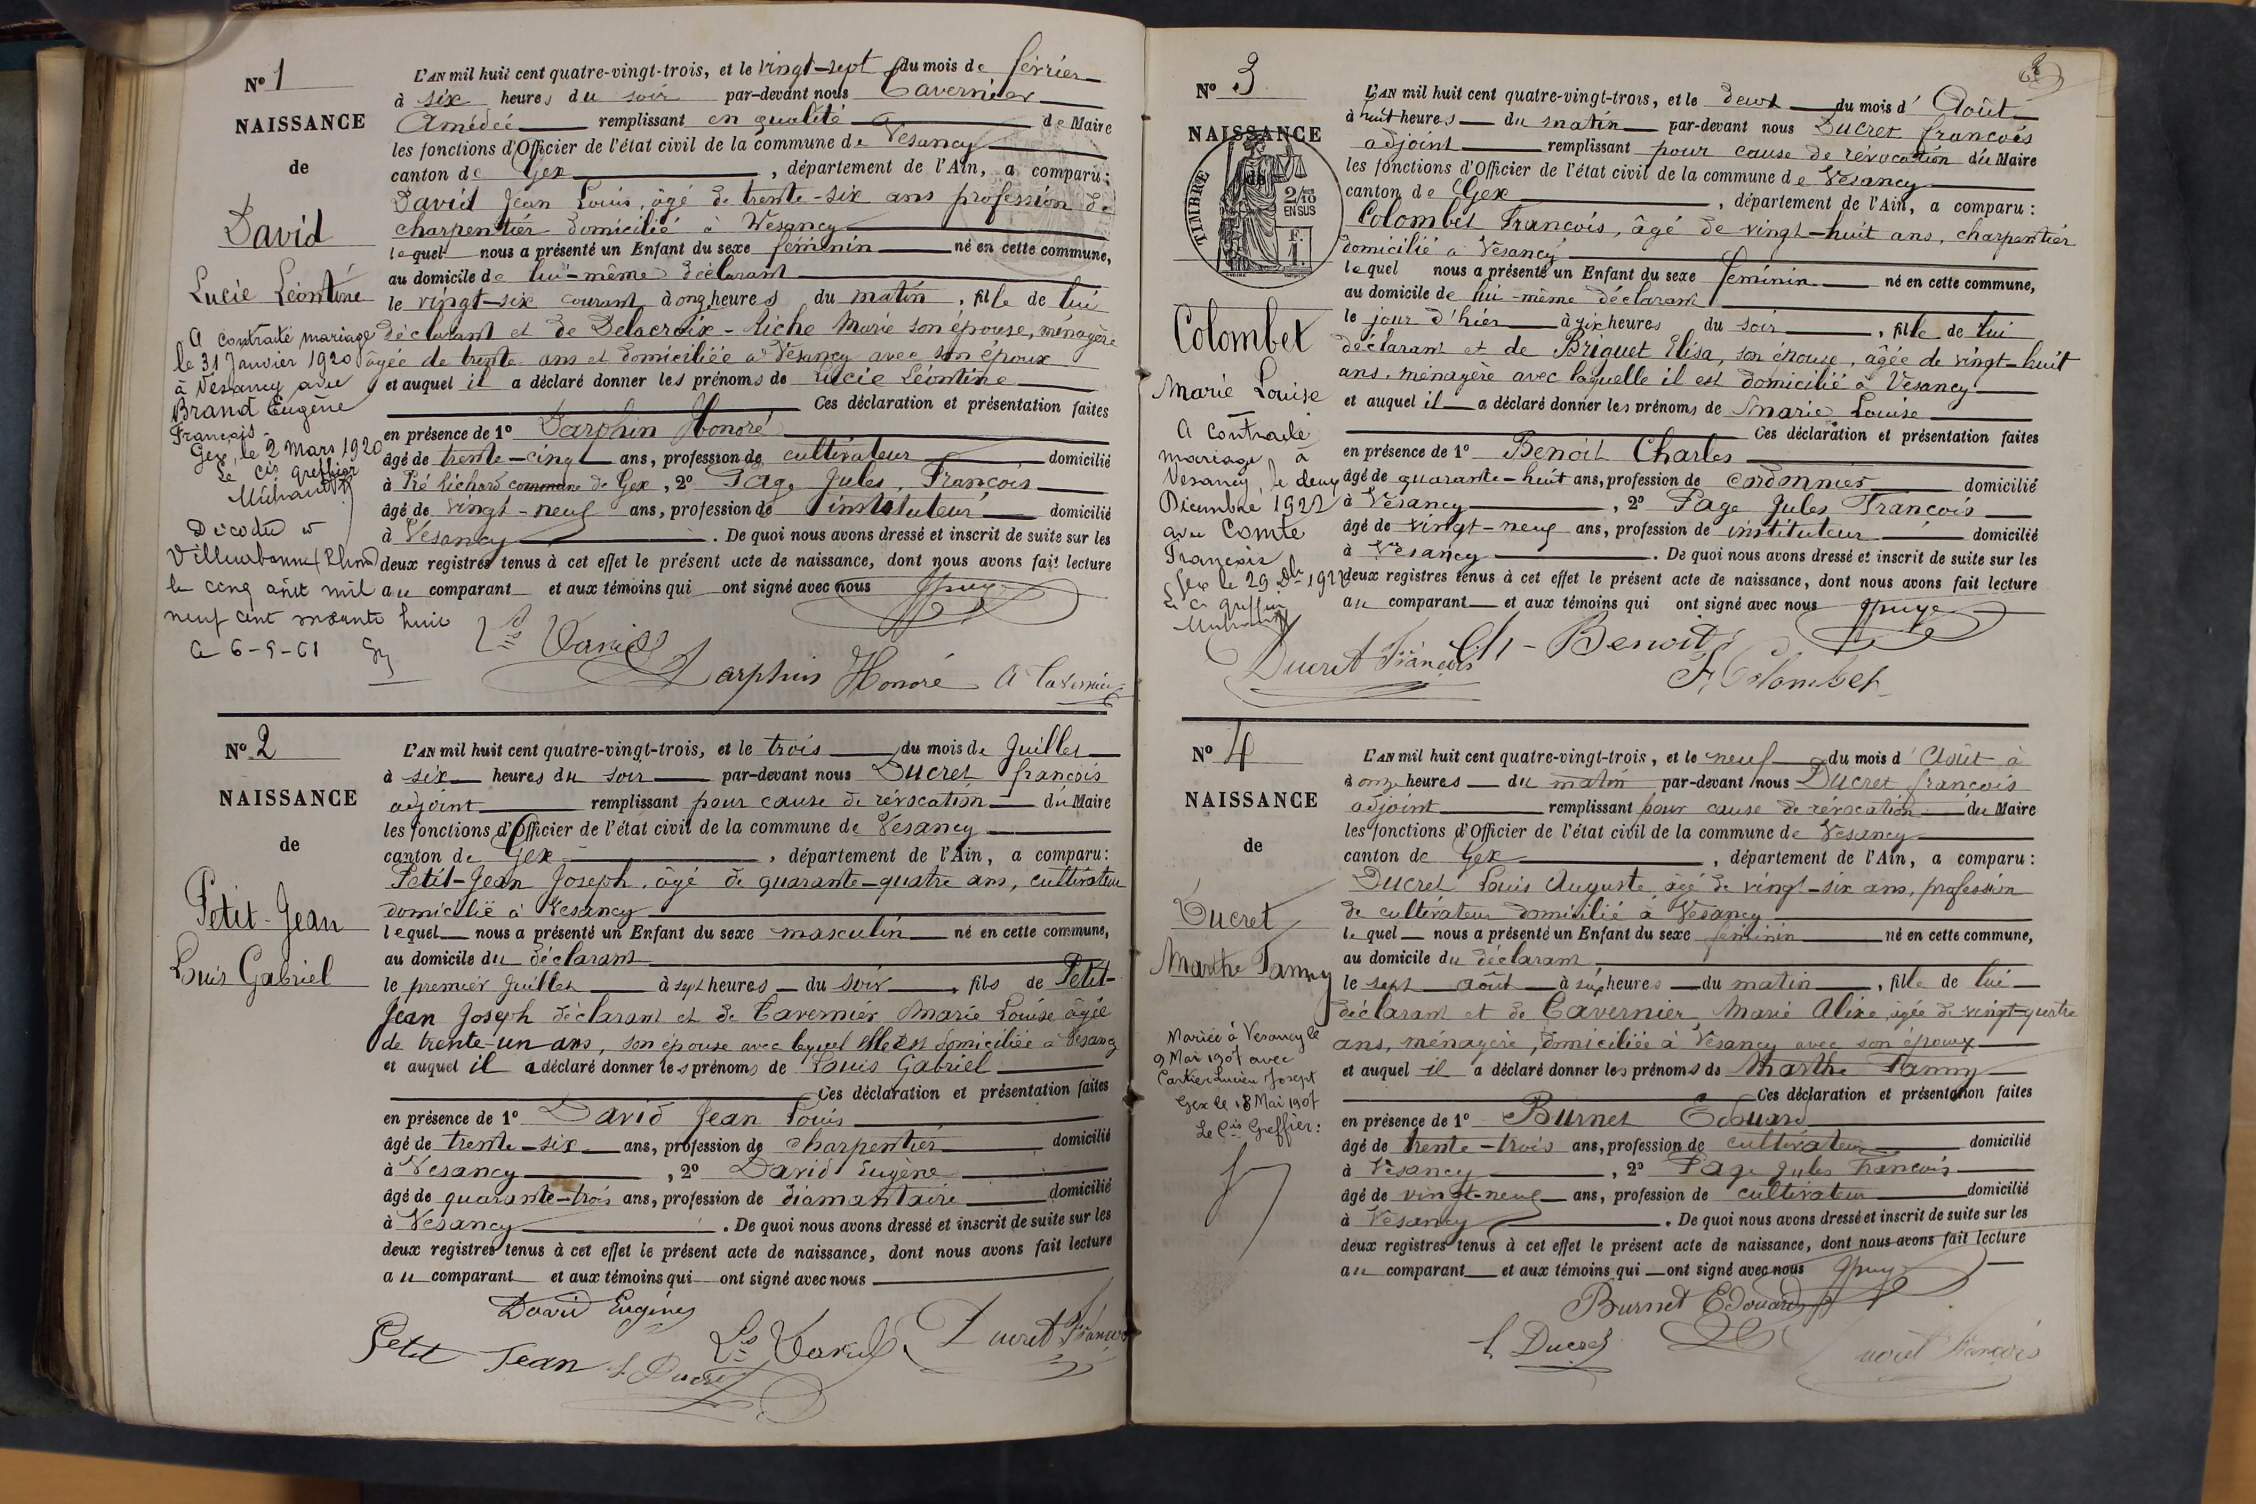 N° 1
NAISSANCE
de
David
Lucie Léontine
A contracté mariage
le 31 Janvier 1920
à Vesancy avec
Brand Eugène
Français
Gex, le 2 Mars 1920
Le cis greffier
Décédée à
Villeurbanne (Rhône)
le cinq août mil
neuf cent soixante huit
L'AN mil huit cent quatre-vingt-trois, et le vingt-sept du mois de février
à six heures du soir par-devant nous Tavernier
Amédée remplissant en qualité de Maire
les fonctions d'Officier de l'état civil de la commune de Vesancy
canton de Gex, département de l'Ain, a comparu :
David Jean Louis, âgé de trente-six ans profession de
charpentier domicilié à Vesancy
lequel nous a présenté un Enfant du sexe féminin né en cette commune,
au domicile de lui-même déclarant
le vingt-six courant à onze heures du matin, fille de lui
déclarant et de Delacroix-Riche Marie son épouse, ménagère
âgée de trente ans et domiciliée à Vésancy avec son époux
et auquel il a déclaré donner les prénoms de Lucie Léontine
Ces déclaration et présentation faites
en présence de 1° Darphin Honoré
âgé de trente-cinq ans, profession de cultivateur domicilié
à Pré Richard commune de Gex, 2° Page Jules, François
âgé de vingt-neuf ans, profession de instituteur domicilié
à Vesancy. De quoi nous avons dressé et inscrit de suite sur les
deux registres tenus à cet effet le présent acte de naissance, dont nous avons fait lecture
au comparant et aux témoins qui ont signé avec nous
Ls David
Darphin Honoré A Tavernier
N° 2
NAISSANCE
de
Petit-Jean
Louis Gabriel
L'AN mil huit cent quatre-vingt-trois, et le trois du mois de Juillet
à six heures du soir par-devant nous Ducret françois
adjoint remplissant pour cause de révocation du Maire
les fonctions d'Officier de l'état civil de la commune de Vesancy
canton de Gex, département de l'Ain, a comparu :
Petit-Jean Joseph, âgé de quarante-quatre ans, cultivateur
domicilié à Vesancy
lequel nous a présenté un Enfant du sexe masculin né en cette commune,
au domicile du déclarant
le premier Juillet à sept heures du soir, fils de Petit-
Jean Joseph déclarant et de Tavernier Marie Louise âgée
de trente-un ans, son épouse avec lequel elle est domiciliée à Vesancy
et auquel il a déclaré donner les prénoms de Louis Gabriel
Ces déclaration et présentation faites
en présence de 1° David Jean Louis
âgé de trente-six ans, profession de charpentier domicilié
à Vesancy, 2° David Eugène
âgé de quarante-trois ans, profession de diamantaire domicilié
à Vesancy. De quoi nous avons dressé et inscrit de suite sur les
deux registres tenus à cet effet le présent acte de naissance, dont nous avons fait lecture
au comparant et aux témoins qui ont signé avec nous
David Eugène
Petit Jean L Ducret Ls David Ducret François
N° 3
NAISSANCE
de
TIMBRE
2/10
EN SUS
F.
1.
Colombet
Marie Louise
A contracté
mariage à
Vesancy, le deux
Décembre 1922
avec Comte
François
Gex le 29 Dbre 1922
Le cis greffier
L'AN mil huit cent quatre-vingt-trois, et le deux du mois d'Août
à huit heures du matin par-devant nous Ducret françois
adjoint remplissant pour cause de révocation du Maire
les fonctions d'Officier de l'état civil de la commune de Vesancy
canton de Gex, département de l'Ain, a comparu :
Colombet François, âgé de vingt-huit ans, charpentier
domicilié à Vesancy
lequel nous a présenté un Enfant du sexe féminin né en cette commune,
au domicile de lui-même déclarant
le jour d'hier à six heures du soir, fille de lui
déclarant et de Briquet Elisa, son épouse, âgée de vingt-huit
ans, ménagère avec laquelle il est domicilié à Vesancy
et auquel il a déclaré donner les prénoms de Marie Louise
Ces déclaration et présentation faites
en présence de 1° Benoit Charles
âgé de quarante-huit ans, profession de cordonnier domicilié
à Vesancy, 2° Page Jules François
âgé de vingt-neuf ans, profession de instituteur domicilié
à Vesancy. De quoi nous avons dressé et inscrit de suite sur les
deux registres tenus à cet effet le présent acte de naissance, dont nous avons fait lecture
au comparant et aux témoins qui ont signé avec nous
Ducret François Ch-Benoit
F. Colombet
N° 4
NAISSANCE
de
Ducret
Marthe Fanny
Mariée à Vesancy le
9 Mai 1907 avec
Cartier Lucien Joseph
Gex le 18 Mai 1907
Le Cis Greffier :
L'AN mil huit cent quatre-vingt-trois, et le neuf du mois d'Août à
à onze heures du matin par-devant nous Ducret françois
adjoint remplissant pour cause de révocation du Maire
les fonctions d'Officier de l'état civil de la commune de Vesancy
canton de Gex, département de l'Ain, a comparu :
Ducret Louis Auguste âgé de vingt-six ans, profession
de cultivateur domicilié à Vesancy
lequel nous a présenté un Enfant du sexe féminin né en cette commune,
au domicile du déclarant
le sept août à six heures du matin, fille de lui
déclarant et de Tavernier Marie Alixe, âgée de vingt-quatre
ans, ménagère, domiciliée à Vesancy avec son époux
et auquel il a déclaré donner les prénoms de Marthe Fanny
Ces déclaration et présentation faites
en présence de 1° Burnet Edouard
âgé de trente-trois ans, profession de cultivateur domicilié
à Vesancy, 2° Page Jules François
âgé de vingt-neuf ans, profession de cultivateur domicilié
à Vesancy. De quoi nous avons dressé et inscrit de suite sur les
deux registres tenus à cet effet le présent acte de naissance, dont nous avons fait lecture
au comparant et aux témoins qui ont signé avec nous
Burnet Edouard
L Ducret Ducret François